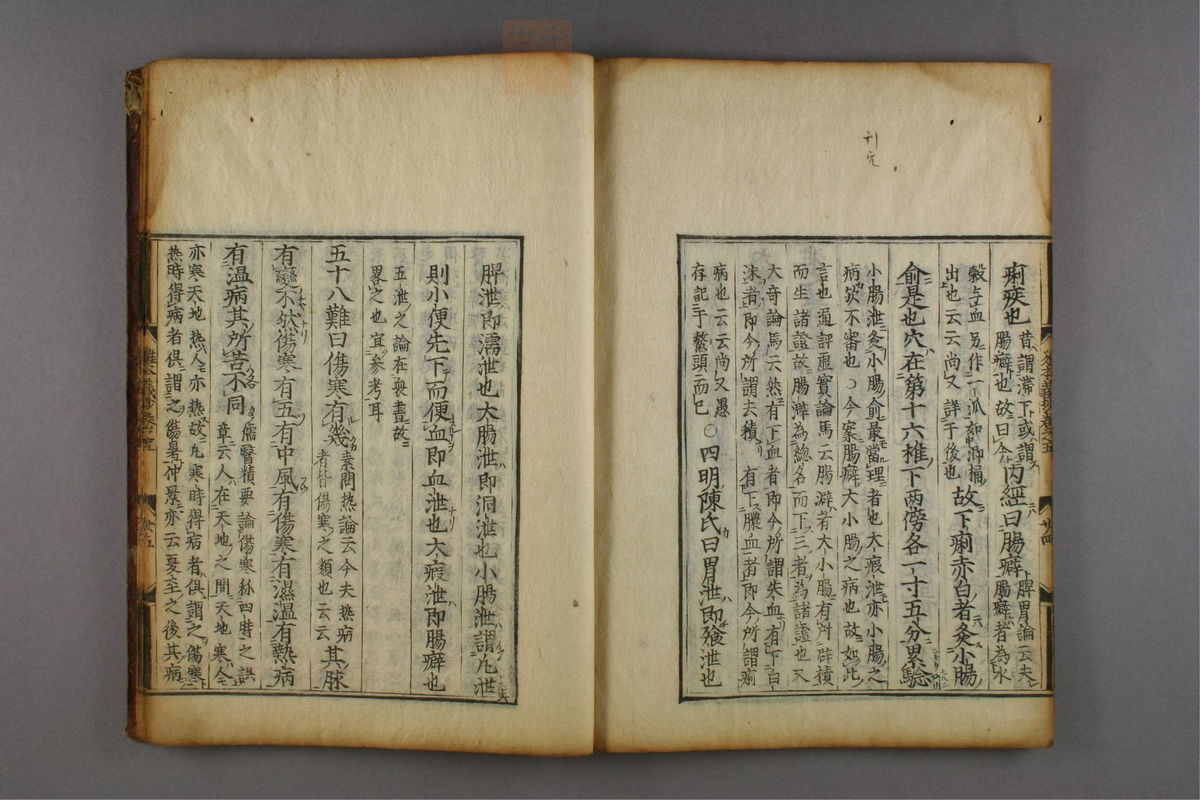 痢疾也 昔謂滯下或謂 內經曰腸癖 脾胃論云夫
腸癖也故曰今 腸癖者為水
穀与血另作一派如泖桶
出也云云尚又詳于後也 故下痢赤白者灸小腸
俞是也穴在第十六椎下两傍各一寸五分累驗
小腸泄灸小腸俞最當理者也大瘕泄亦小腸之
病欤不審也○今案腸癖大小腸之病也故如此
言也通評虛實論馬云腸澼者大小腸有所辟積
而生諸證故腸澼為總名而下三者為諸證也又
大奇論馬云然有下血者即今所謂失血有下白
沫者即今所謂去積 有下膿血者即今所謂痢
病也云云尚又愚
存記于鰲頭而已 ○四明陳氏曰胃泄即飱泄也
脾泄即濡泄也大腸泄即洞泄也小腸泄謂凡泄
則小便先下而便血即血泄也大瘕泄即腸癖也
五泄之論在喪書故
畧之也宜参考耳
五十八難曰傷寒有幾 素問熱論云今夫热病
者皆傷寒之類也云云 其脉
有變不然傷寒有五有中風有傷寒有濕溫有熱病
有温病其所苦不同 儒醫精要論傷寒称四時之誤
章云人在天地之間天地寒人
亦寒天地热人亦热故凡寒時得病者俱謂之傷寒
热時得病者俱謂之傷暑仲景亦云夏至之後其病